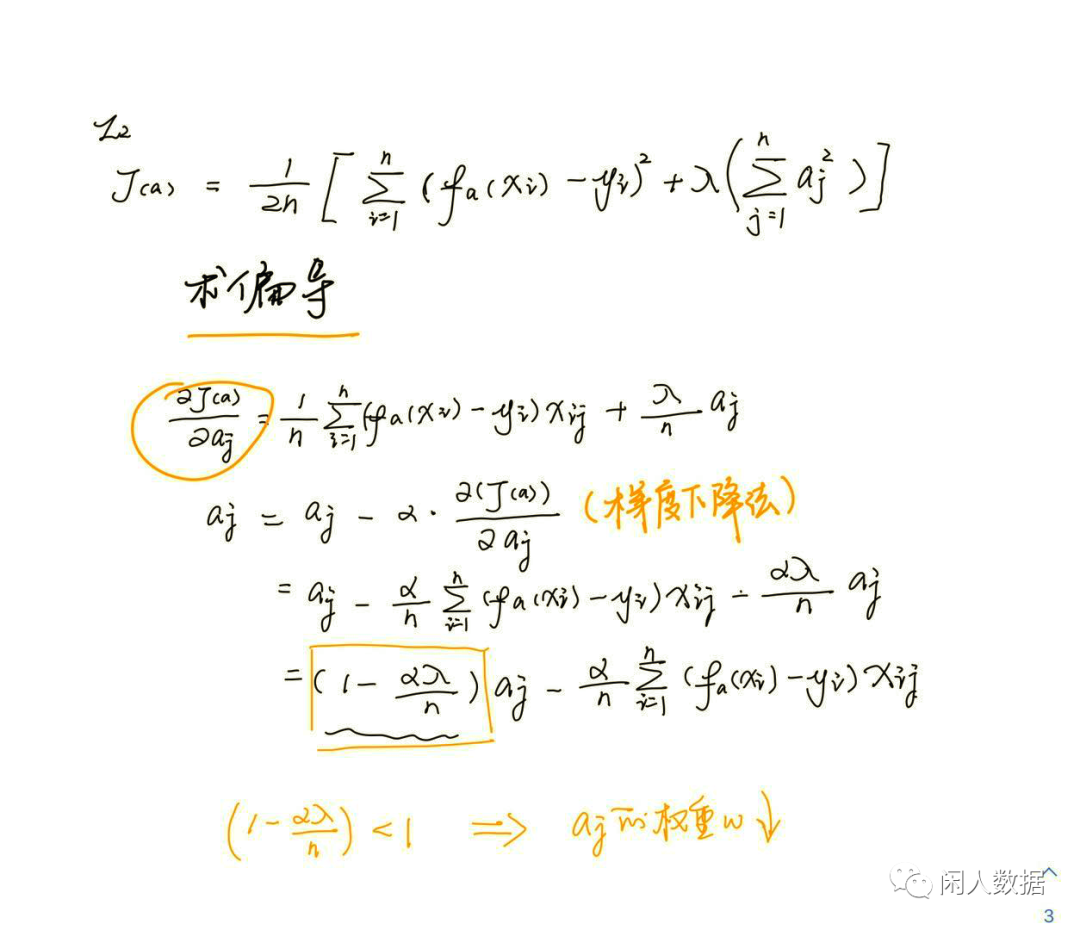 L2
J(a) = 1/2n [ ∑_{i=1}^{n} (f_a(x_i) - y_i)² + λ( ∑_{j=1}^{n} a_j² ) ]
求偏导
∂J(a)/∂a_j = 1/n ∑_{i=1}^{n} (f_a(x_i) - y_i) x_ij + λ/n a_j
a_j = a_j - α · ∂(J(a))/∂a_j (梯度下降法)
= a_j - α/n ∑_{i=1}^{n} (f_a(x_i) - y_i) x_ij - αλ/n a_j
= (1 - αλ/n) a_j - α/n ∑_{i=1}^{n} (f_a(x_i) - y_i) x_ij
(1 - αλ/n) < 1 ⟹ a_j 的权重 w ↓
闲人数据
3